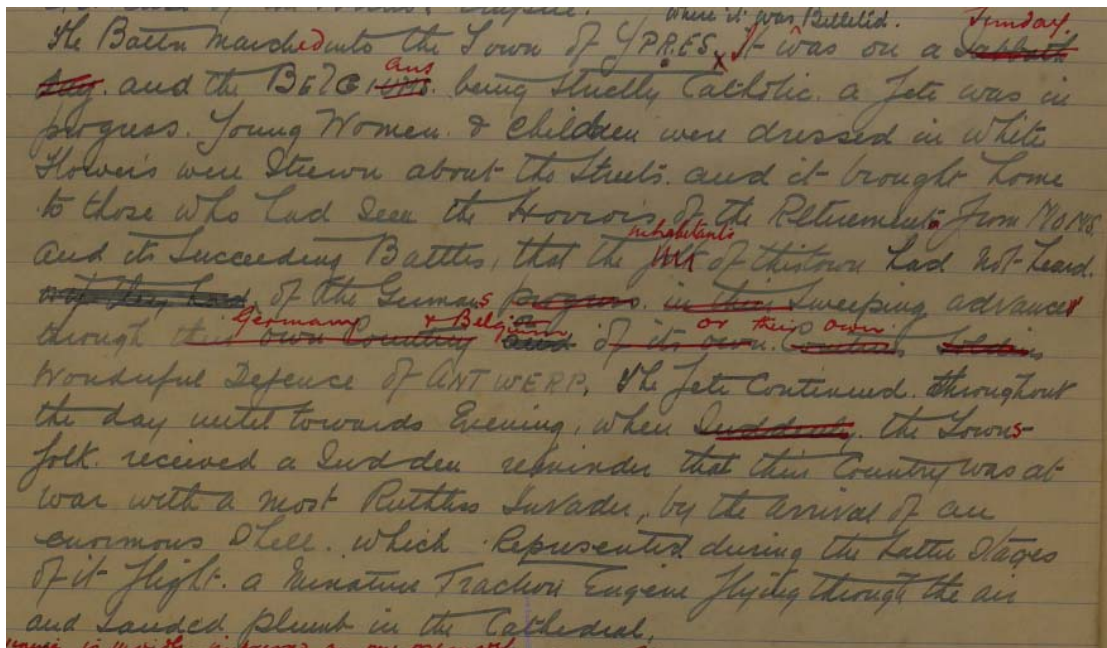 where it was Billetid. Sunday
The Battn Marchedinto the Town of YPRES. It was on a Sabbath
day. and the BELGIUMS ans being Strictly Catholic. a Fete was in
progress. Young Women. & Children were dressed in White
Flowers were Strewn about the Streets. and it brought home
to those who had seen the Horrors of the Retirements from MONS
inhabitants
and its Succeeding Battles, that the of thistown had not heard.
of the Germans progress. in their Sweeping advances
Germany & Belgium or their own
through their own Country and of its own. Soldiers
Wonderful Defence of ANTWERP. The Fete Continued. throughout
the day until towards Evening, when Suddenly. the Towns-
folk. received a Sudden reminder that their Country was at
war with a most Ruthless Invader, by the arrival of an
enormous Shell. which Represented during the Latter Stages
of it flight. a Minature Traction Engine flying through the air
and Landed plumb in the Cathedral.